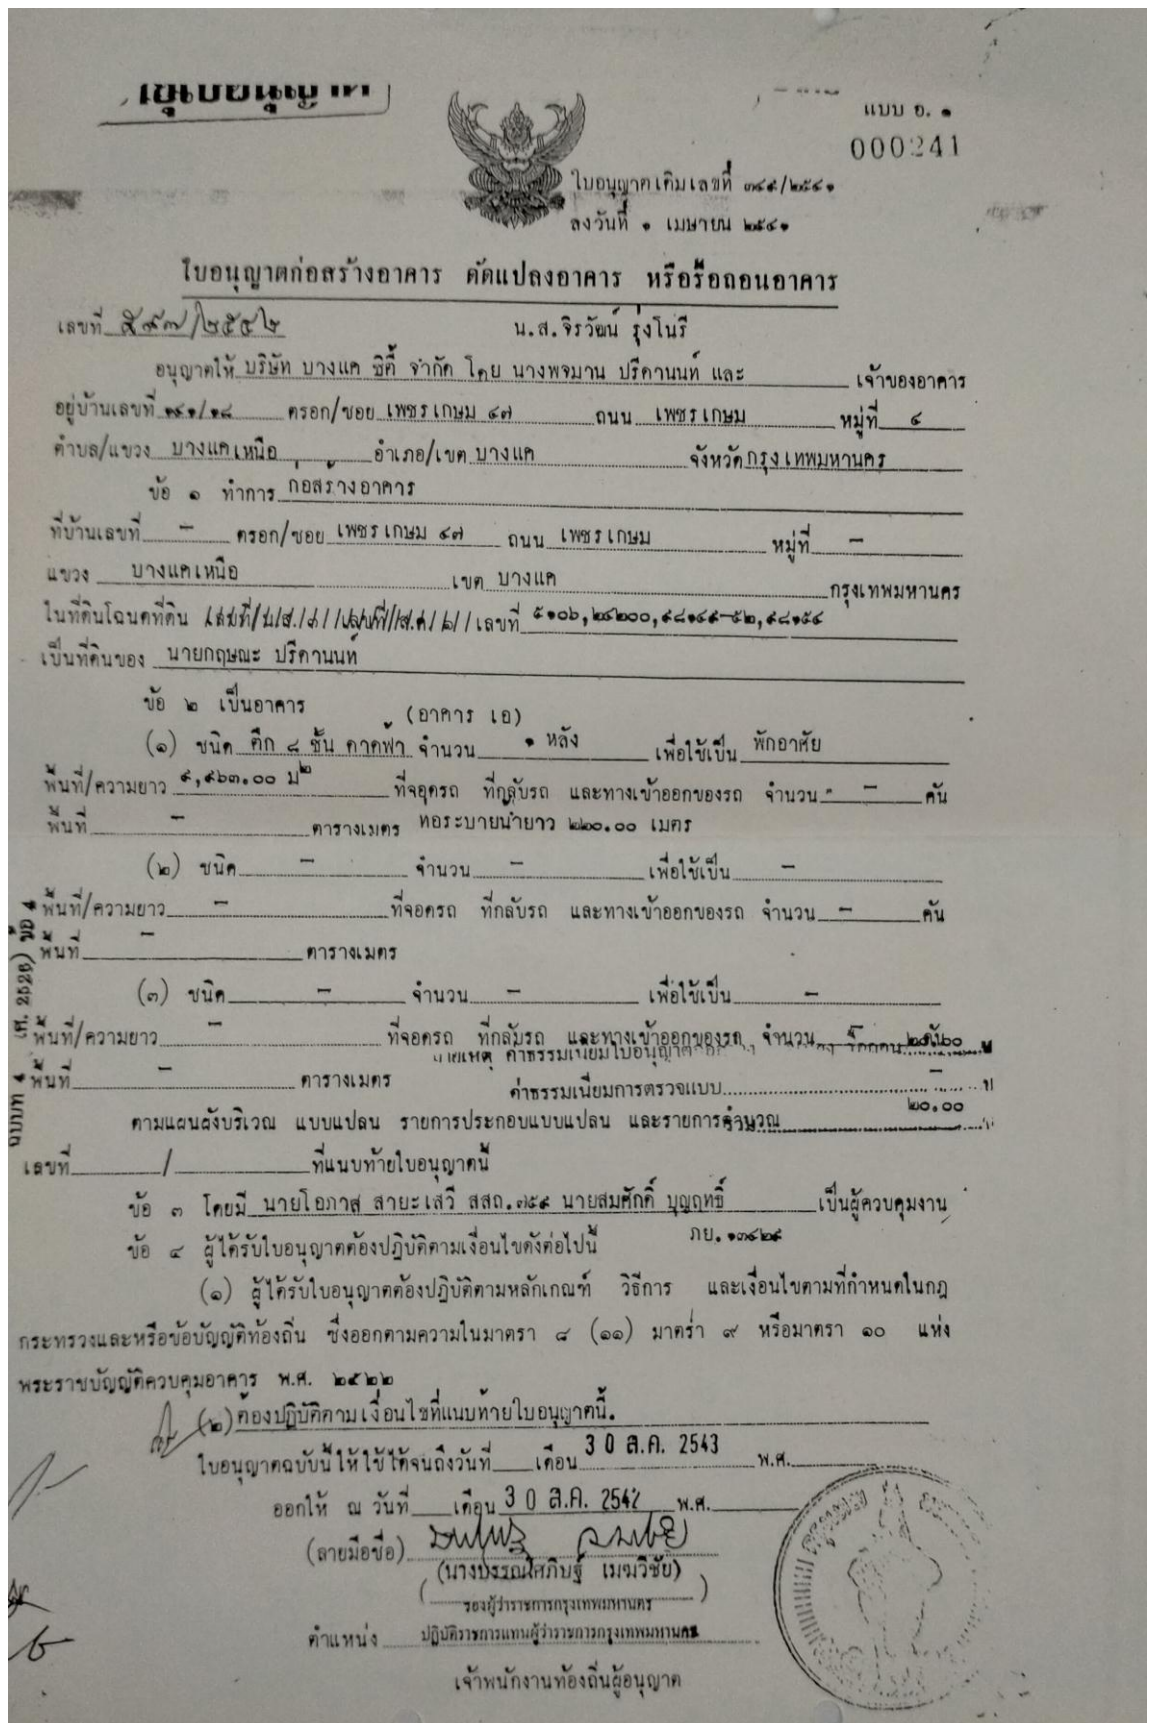 แบบ อ. ๑
000241
ใบอนุญาตเดิมเลขที่ ๓๔๙/๒๕๔๑
ลงวันที่ ๑ เมษายน ๒๕๔๑
ใบอนุญาตก่อสร้างอาคาร ดัดแปลงอาคาร หรือรื้อถอนอาคาร
เลขที่ ๕๙๗/๒๕๔๒ น.ส.จิรวัฒน์ รุ่งโนรี
อนุญาตให้ บริษัท บางแค ซิตี้ จำกัด โดย นางพจมาน ปรีดานนท์ และ เจ้าของอาคาร
อยู่บ้านเลขที่ ตรอก/ซอย เพชรเกษม ๔๗ ถนน เพชรเกษม หมู่ที่ ๔
ตำบล/แขวง บางแคเหนือ อำเภอ/เขต บางแค จังหวัด กรุงเทพมหานคร
ข้อ ๑ ทำการ ก่อสร้างอาคาร
ที่บ้านเลขที่ - ตรอก/ซอย เพชรเกษม ๔๗ ถนน เพชรเกษม หมู่ที่ -
แขวง บางแคเหนือ เขต บางแค กรุงเทพมหานคร
ในที่ดินโฉนดที่ดิน เลขที่ ๕๑๐๖,๒๔๒๐๐,๙๘๑๔๙-๕๒,๙๘๑๕๔
เป็นที่ดินของ นายกฤษณะ ปรีดานนท์
ข้อ ๒ เป็นอาคาร (อาคาร เอ)
(๑) ชนิด ตึก ๘ ชั้น ดาดฟ้า จำนวน ๑ หลัง เพื่อใช้เป็น พักอาศัย
พื้นที่/ความยาว ๙,๙๖๓.๐๐ ม๒ ที่จอดรถ ที่กลับรถ และทางเข้าออกของรถ จำนวน - คัน
พื้นที่ - ตารางเมตร ท่อระบายน้ำยาว ๒๒๐.๐๐ เมตร
(๒) ชนิด - จำนวน - เพื่อใช้เป็น -
พื้นที่/ความยาว - ที่จอดรถ ที่กลับรถ และทางเข้าออกของรถ จำนวน - คัน
พื้นที่ - ตารางเมตร
(๓) ชนิด - จำนวน - เพื่อใช้เป็น -
พื้นที่/ความยาว - ที่จอดรถ ที่กลับรถ และทางเข้าออกของรถ จำนวน - คัน ๒๐.๐๐
ค่าธรรมเนียมใบอนุญาต
พื้นที่ - ตารางเมตร ค่าธรรมเนียมการตรวจแบบ -
ตามแผนผังบริเวณ แบบแปลน รายการประกอบแบบแปลน และรายการคำนวณ ๒๐.๐๐
เลขที่ / ที่แนบท้ายใบอนุญาตนี้
ข้อ ๓ โดยมี นายโอภาส สายะเสวี สสถ.๓๕๙ นายสมศักดิ์ บุญฤทธิ์ เป็นผู้ควบคุมงาน
ข้อ ๔ ผู้ได้รับใบอนุญาตต้องปฏิบัติตามเงื่อนไขดังต่อไปนี้ ภย.๑๓๔๒๙
(๑) ผู้ได้รับใบอนุญาตต้องปฏิบัติตามหลักเกณฑ์ วิธีการ และเงื่อนไขตามที่กำหนดในกฎ
กระทรวงและหรือข้อบัญญัติท้องถิ่น ซึ่งออกตามความในมาตรา ๘ (๑๑) มาตรา ๙ หรือมาตรา ๑๐ แห่ง
พระราชบัญญัติควบคุมอาคาร พ.ศ. ๒๕๒๒
(๒) ต้องปฏิบัติตามเงื่อนไขที่แนบท้ายใบอนุญาตนี้.
ใบอนุญาตฉบับนี้ให้ใช้ได้จนถึงวันที่ เดือน 30 ส.ค. 2543 พ.ศ.
ออกให้ ณ วันที่ เดือน 30 ส.ค. 2542 พ.ศ.
(ลายมือชื่อ)
(นางบรรณโศภิษฐ์ เมฆวิชัย)
รองผู้ว่าราชการกรุงเทพมหานคร
ตำแหน่ง ปฏิบัติราชการแทนผู้ว่าราชการกรุงเทพมหานคร
เจ้าพนักงานท้องถิ่นผู้อนุญาต